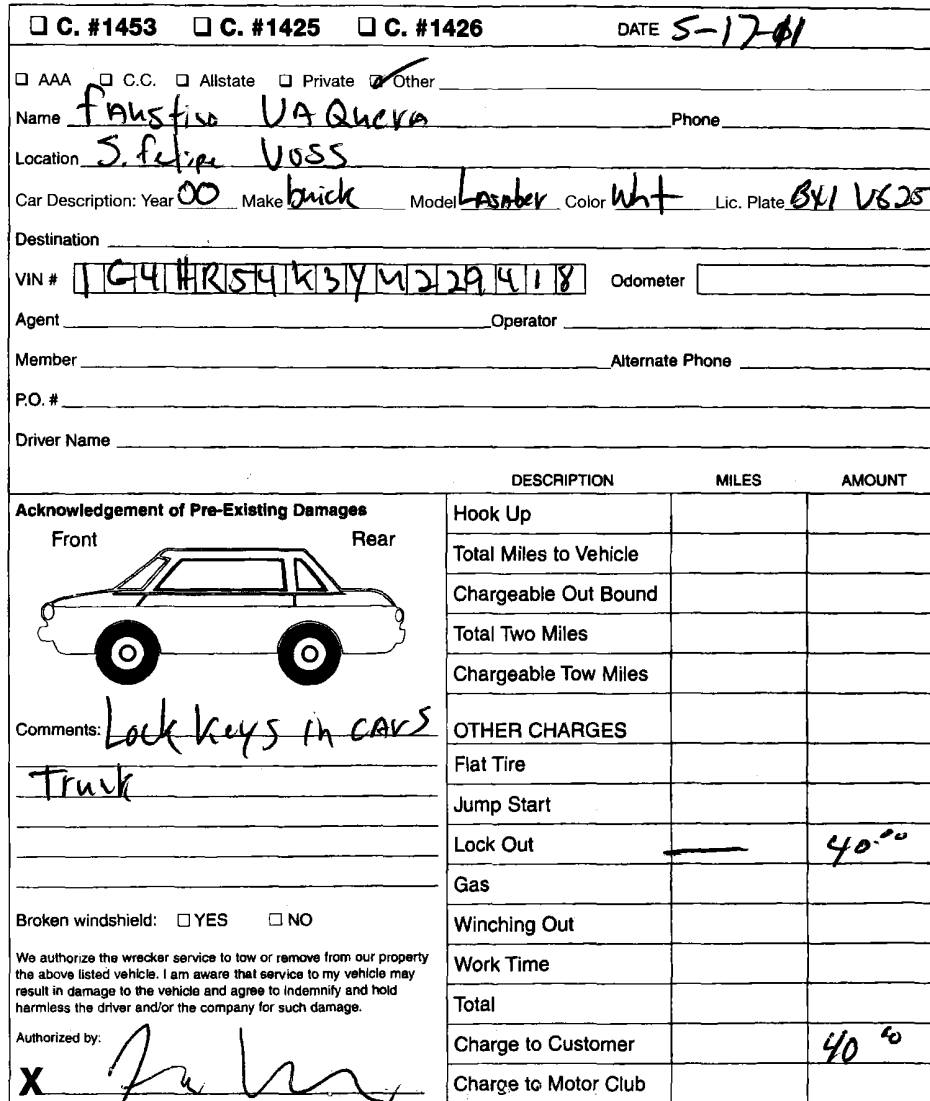 ☐ C. #1453 ☐ C. #1425 ☐ C. #1426 DATE 5-17-01
☐ AAA ☐ C.C. ☐ Allstate ☐ Private ☑ Other
Name Faustino VAQuera Phone
Location S. felipe VOSS
Car Description: Year 00 Make buick Model LASAber Color Wht Lic. Plate BX1 V625
Destination
VIN # 1G4HR54K3YU229418 Odometer
Agent Operator
Member Alternate Phone
P.O. #
Driver Name
DESCRIPTION MILES AMOUNT
Acknowledgement of Pre-Existing Damages
Front Rear
Comments: Lock Keys in CArs
Trunk
Broken windshield: ☐ YES ☐ NO
We authorize the wrecker service to tow or remove from our property
the above listed vehicle. I am aware that service to my vehicle may
result in damage to the vehicle and agree to indemnify and hold
harmless the driver and/or the company for such damage.
Authorized by:
X
Hook Up
Total Miles to Vehicle
Chargeable Out Bound
Total Two Miles
Chargeable Tow Miles
OTHER CHARGES
Flat Tire
Jump Start
Lock Out — 40.00
Gas
Winching Out
Work Time
Total
Charge to Customer 40 00
Charge to Motor Club